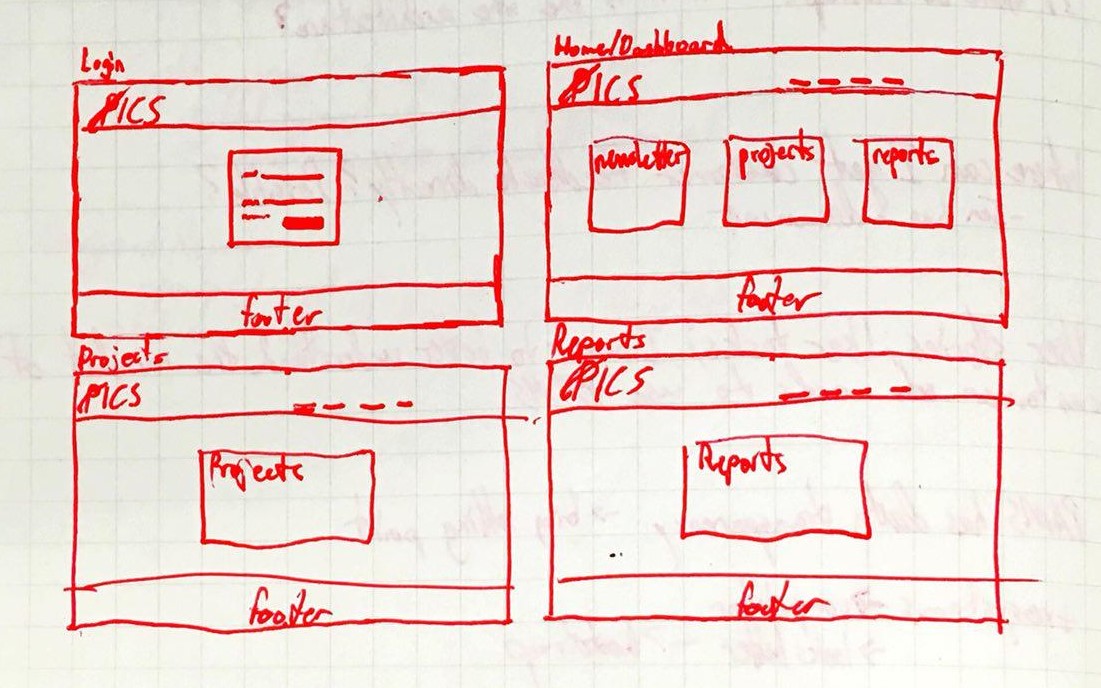 Login
PICS
footer
Home/Dashboard
PICS
newsletter
projects
reports
footer
Projects
PICS
Projects
footer
Reports
PICS
Reports
footer